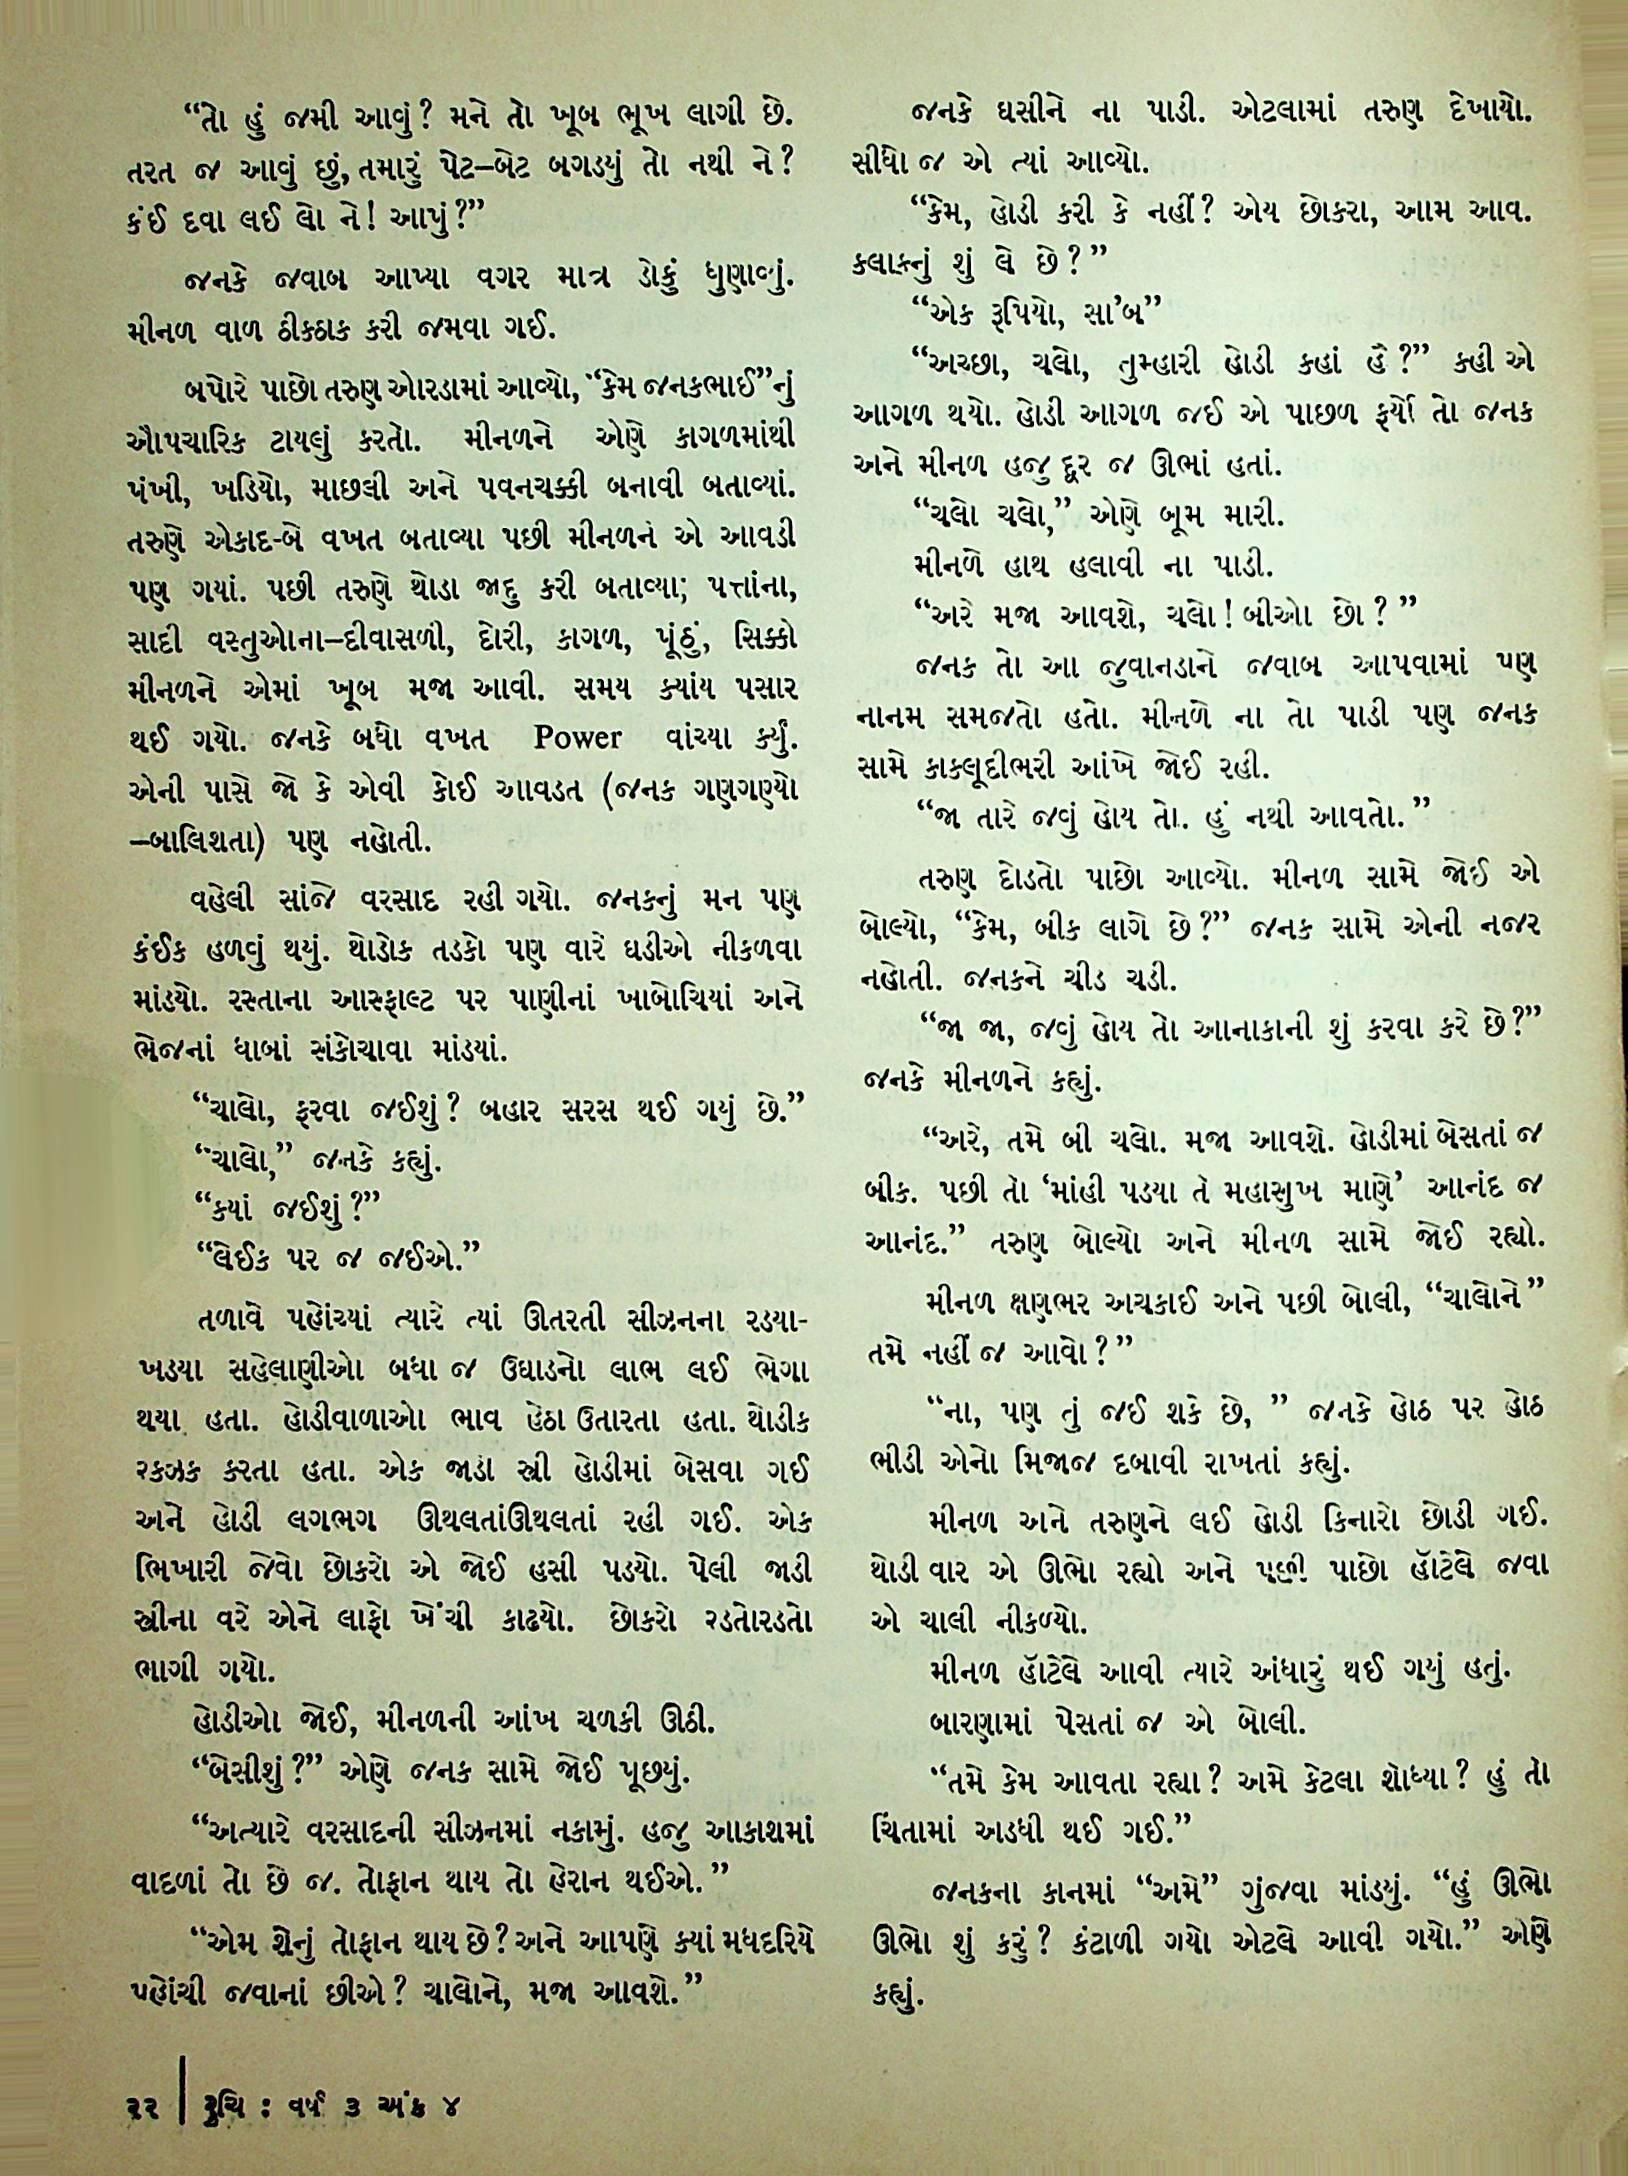 “તો હું જમી આવું? મને તો ખૂબ ભૂખ લાગી છે.
તરત જ આવું છું, તમારું પેટ–બેટ બગડયું તો નથી ને?
કંઈ દવા લઈ લો ને! આપું?”
જનકે જવાબ આપ્યા વગર માત્ર ડોકું ધુણાવ્યું.
મીનળ વાળ ઠીકઠાક કરી જમવા ગઈ.
બપોરે પાછો તરુણ ઓરડામાં આવ્યો, “કેમ જનકભાઈ”નું
ઔપચારિક ટાયલું કરતો. મીનળને એણે કાગળમાંથી
પંખી, ખડિયો, માછલી અને પવનચક્કી બનાવી બતાવ્યાં.
તરુણે એકાદ-બે વખત બતાવ્યા પછી મીનળને એ આવડી
પણ ગયાં. પછી તરુણે થોડા જાદુ કરી બતાવ્યા; પત્તાંના,
સાદી વસ્તુઓના–દીવાસળી, દોરી, કાગળ, પૂંઠું, સિક્કો
મીનળને એમાં ખૂબ મજા આવી. સમય ક્યાંય પસાર
થઈ ગયો. જનકે બધો વખત Power વાંચ્યા કર્યું.
એની પાસે જો કે એવી કોઈ આવડત (જનક ગણગણ્યો
–બાલિશતા) પણ નહોતી.
વહેલી સાંજે વરસાદ રહી ગયો. જનકનું મન પણ
કંઈક હળવું થયું. થોડોક તડકો પણ વારે ઘડીએ નીકળવા
માંડયો. રસ્તાના આસ્ફાલ્ટ પર પાણીનાં ખાબોચિયાં અને
ભેજનાં ધાબાં સંકોચાવા માંડયાં.
“ચાલો, ફરવા જઈશું? બહાર સરસ થઈ ગયું છે.”
“ચાલો,” જનકે કહ્યું.
“ક્યાં જઈશું?”
“લેઈક પર જ જઈએ.”
તળાવે પહોંચ્યાં ત્યારે ત્યાં ઊતરતી સીઝનના રડયા-
ખડયા સહેલાણીઓ બધા જ ઉઘાડનો લાભ લઈ ભેગા
થયા હતા. હોડીવાળાઓ ભાવ હેઠા ઉતારતા હતા. થોડીક
રકઝક કરતા હતા. એક જાડી સ્ત્રી હોડીમાં બેસવા ગઈ
અને હોડી લગભગ ઊથલતાંઊથલતાં રહી ગઈ. એક
ભિખારી જેવો છોકરો એ જોઈ હસી પડયો. પેલી જાડી
સ્ત્રીના વરે એને લાફો ખેંચી કાઢયો. છોકરો રડતોરડતો
ભાગી ગયો.
હોડીઓ જોઈ, મીનળની આંખ ચળકી ઊઠી.
“બેસીશું?” એણે જનક સામે જોઈ પૂછયું.
“અત્યારે વરસાદની સીઝનમાં નકામું. હજુ આકાશમાં
વાદળાં તો છે જ. તોફાન થાય તો હેરાન થઈએ.”
“એમ શેનું તોફાન થાય છે? અને આપણે ક્યાં મધદરિયે
પહોંચી જવાનાં છીએ? ચાલોને, મજા આવશે.”
જનકે ઘસીને ના પાડી. એટલામાં તરુણ દેખાયો.
સીધો જ એ ત્યાં આવ્યો.
“કેમ, હોડી કરી કે નહીં? એય છોકરા, આમ આવ.
કલાકનું શું લે છે?”
“એક રૂપિયો, સા’બ”
“અચ્છા, ચલો, તુમ્હારી હોડી કહાં હૈ?” કહી એ
આગળ થયો. હોડી આગળ જઈ એ પાછળ ફર્યો તો જનક
અને મીનળ હજુ દૂર જ ઊભાં હતાં.
“ચલો ચલો,” એણે બૂમ મારી.
મીનળે હાથ હલાવી ના પાડી.
“અરે મજા આવશે, ચલો! બીઓ છો?”
જનક તો આ જુવાનડાને જવાબ આપવામાં પણ
નાનમ સમજતો હતો. મીનળે ના તો પાડી પણ જનક
સામે કાકલૂદીભરી આંખે જોઈ રહી.
“જા તારે જવું હોય તો. હું નથી આવતો.”
તરુણ દોડતો પાછો આવ્યો. મીનળ સામે જોઈ એ
બોલ્યો, “કેમ, બીક લાગે છે?” જનક સામે એની નજર
નહોતી. જનકને ચીડ ચડી.
“જા જા, જવું હોય તો આનાકાની શું કરવા કરે છે?”
જનકે મીનળને કહ્યું.
“અરે, તમે બી ચલો. મજા આવશે. હોડીમાં બેસતાં જ
બીક. પછી તો ‘માંહી પડયા તે મહાસુખ માણે’ આનંદ જ
આનંદ.” તરુણ બોલ્યો અને મીનળ સામે જોઈ રહ્યો.
મીનળ ક્ષણભર અચકાઈ અને પછી બોલી, “ચાલોને”
તમે નહીં જ આવો?”
“ના, પણ તું જઈ શકે છે,” જનકે હોઠ પર હોઠ
ભીડી એનો મિજાજ દબાવી રાખતાં કહ્યું.
મીનળ અને તરુણને લઈ હોડી કિનારો છોડી ગઈ.
થોડી વાર એ ઊભો રહ્યો અને પછી પાછો હૉટેલે જવા
એ ચાલી નીકળ્યો.
મીનળ હૉટેલે આવી ત્યારે અંધારું થઈ ગયું હતું.
બારણામાં પેસતાં જ એ બોલી.
“તમે કેમ આવતા રહ્યા? અમે કેટલા શોધ્યા? હું તો
ચિંતામાં અડધી થઈ ગઈ.”
જનકના કાનમાં “અમે” ગુંજવા માંડયું. “હું ઊભો
ઊભો શું કરું? કંટાળી ગયો એટલે આવી ગયો.” એણે
કહ્યું.
૨૨ | રુચિ : વર્ષ ૩ અંક ૪